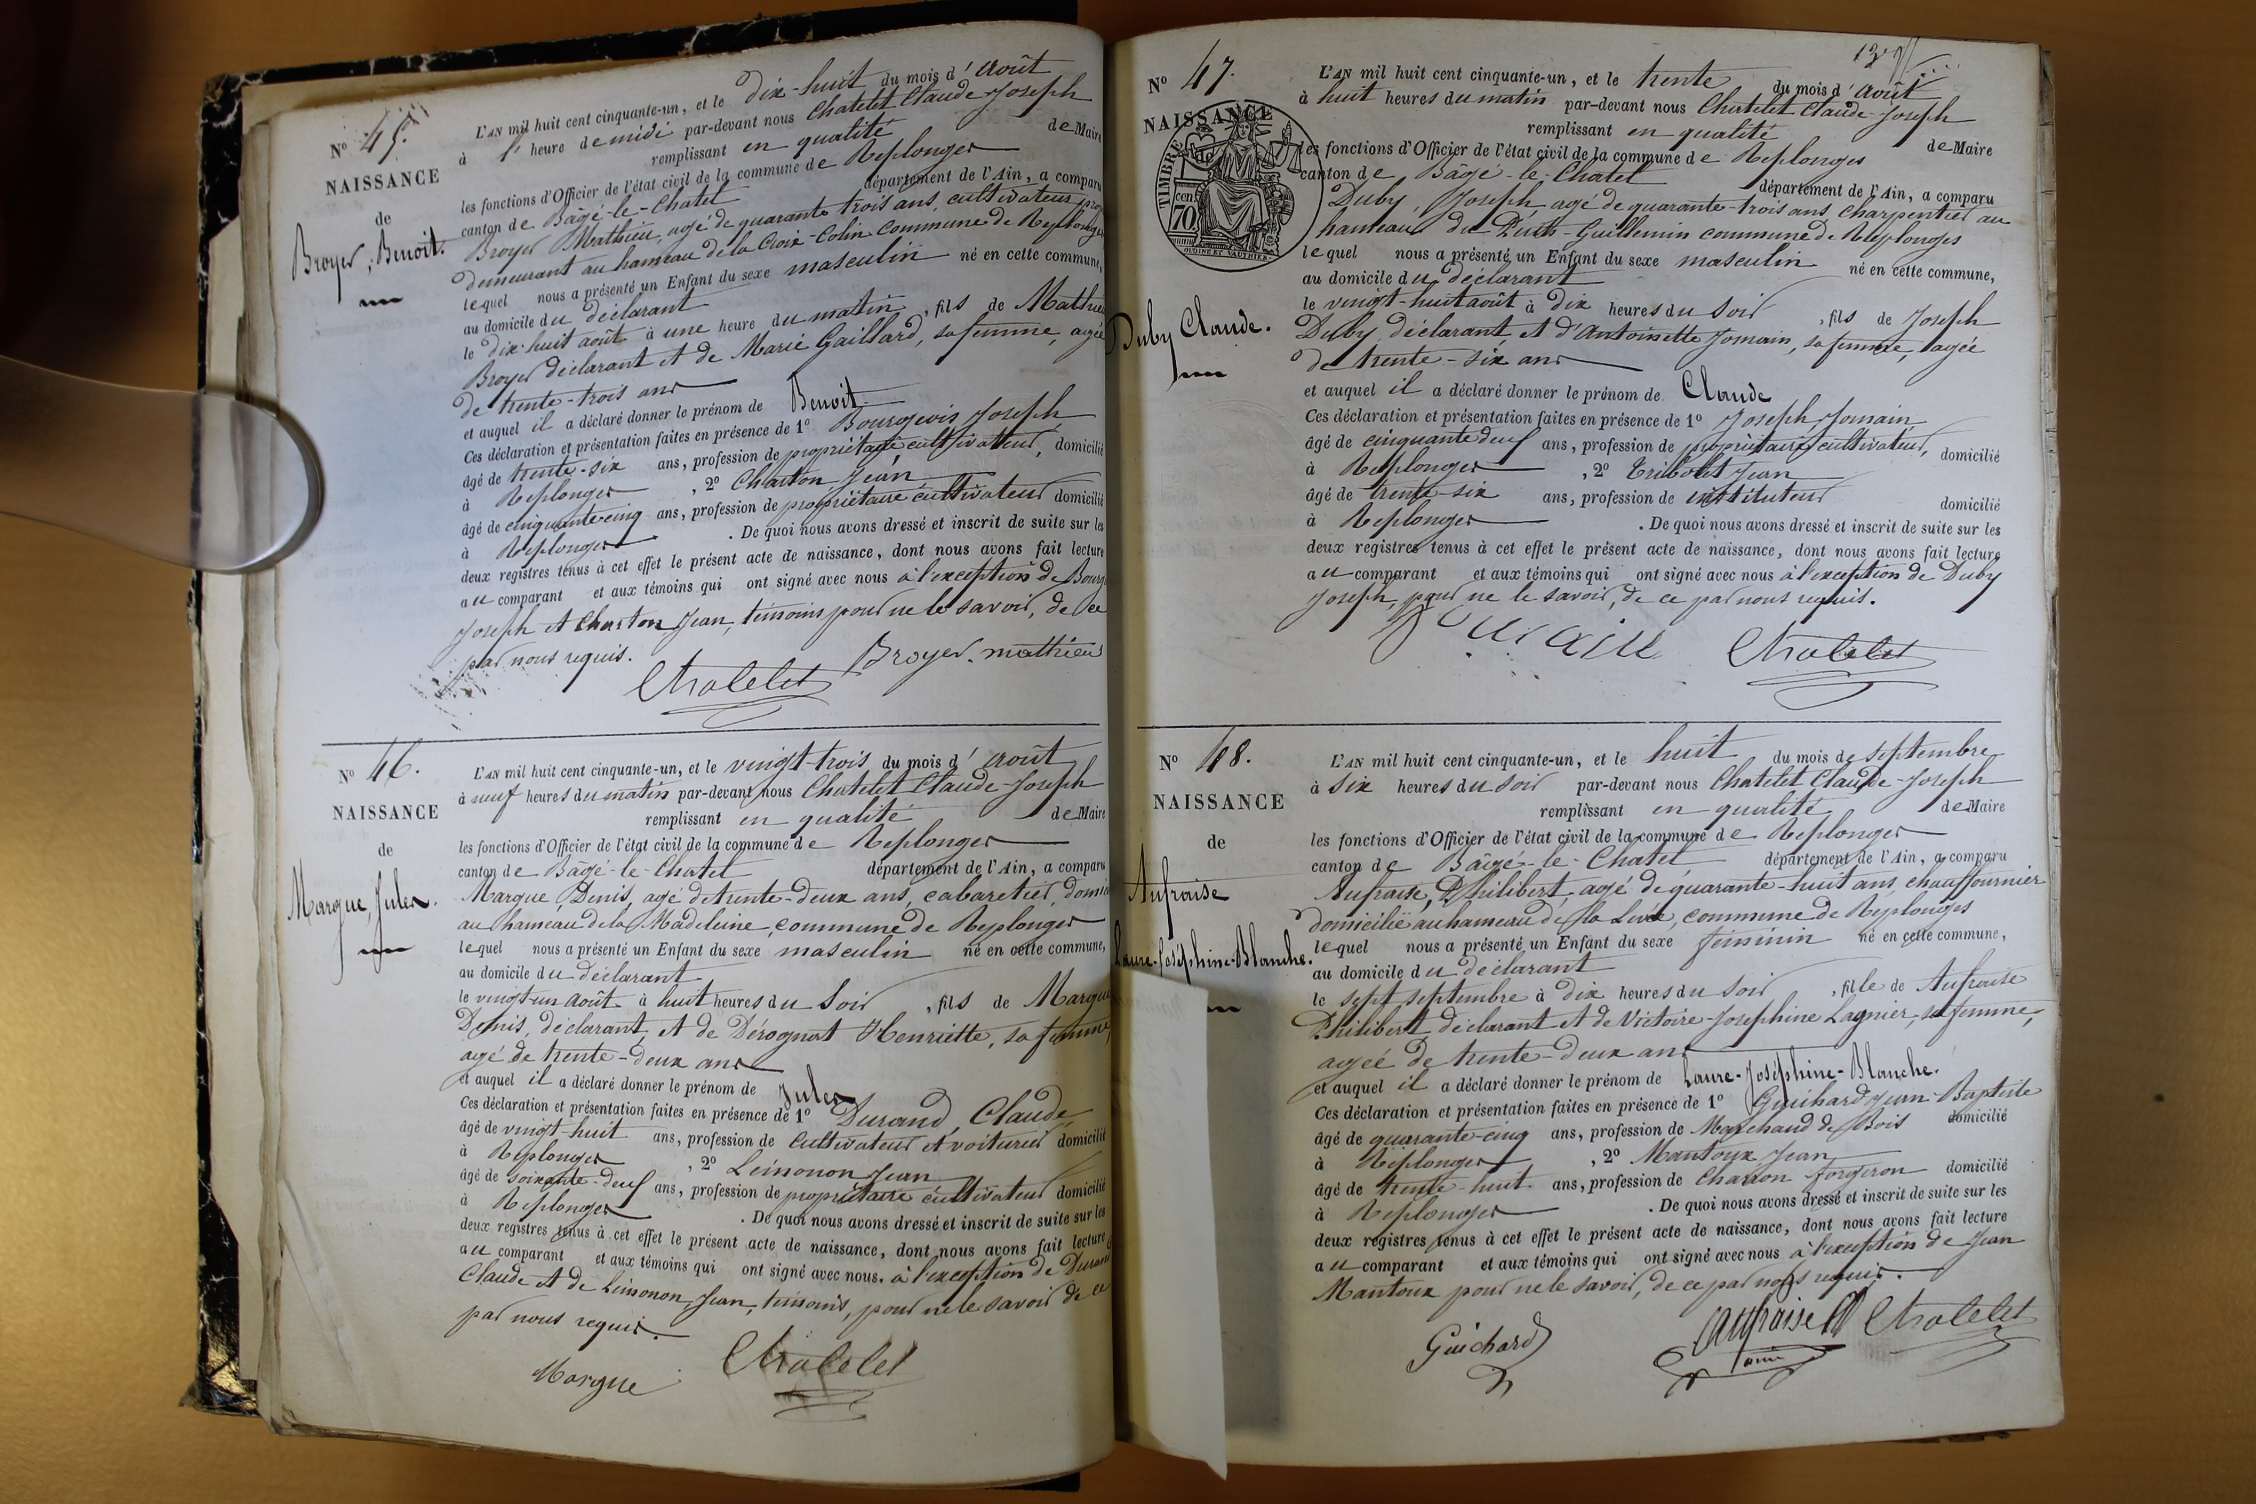 N° 45.
NAISSANCE
de
Broyer, Benoit.
L'AN mil huit cent cinquante-un, et le dix-huit du mois d'Août
à heure de midi par-devant nous Chatelet Claude Joseph
remplissant en qualité de Maire
les fonctions d'Officier de l'état civil de la commune de Replonges
canton de Bâgé-le-Chatel département de l'Ain, a comparu
Broyer Mathieu, agé de quarante trois ans, cultivateur
demeurant au hameau de la Croix-Colin commune de Replonges
lequel nous a présenté un Enfant du sexe masculin né en cette commune,
au domicile du déclarant
le dix-huit août à une heure du matin, fils de Mathieu
Broyer déclarant et de Marie Gaillard, sa femme, agée
de trente-trois ans
et auquel il a déclaré donner le prénom de Benoit
Ces déclaration et présentation faites en présence de 1° Bourgeois Joseph
âgé de trente-six ans, profession de propriétaire cultivateur, domicilié
à Replonges, 2° Charton Jean
âgé de cinquante-cinq ans, profession de propriétaire cultivateur domicilié
à Replonges. De quoi nous avons dressé et inscrit de suite sur les
deux registres tenus à cet effet le présent acte de naissance, dont nous avons fait lecture
au comparant et aux témoins qui ont signé avec nous à l'exception de
Joseph et Charton Jean, témoins pour ne le savoir, de ce
par nous requis.
Chatelet Broyer. mathieu
N° 46.
NAISSANCE
de
Margue, Jules.
L'AN mil huit cent cinquante-un, et le vingt-trois du mois d'Août
à neuf heures du matin par-devant nous Chatelet Claude-Joseph
remplissant en qualité de Maire
les fonctions d'Officier de l'état civil de la commune de Replonges
canton de Bâgé-le-Chatel département de l'Ain, a comparu
Margue, Denis, agé de trente-deux ans, cabaretier,
au hameau de la Madeleine, commune de Replonges
lequel nous a présenté un Enfant du sexe masculin né en cette commune,
au domicile du déclarant
le vingt-un Août à huit heures du soir, fils de Margue
Denis, déclarant, et de Dérognat Henriette, sa femme,
agé de trente-deux ans
et auquel il a déclaré donner le prénom de Jules
Ces déclaration et présentation faites en présence de 1° Durand, Claude
âgé de vingt-huit ans, profession de cultivateur et voiturier domicilié
à Replonges, 2° Léinonon Jean
âgé de soixante-deuf ans, profession de propriétaire cultivateur domicilié
à Replonges. De quoi nous avons dressé et inscrit de suite sur les
deux registres tenus à cet effet le présent acte de naissance, dont nous avons fait lecture
au comparant et aux témoins qui ont signé avec nous. à l'exception de Durand
Claude et de Léinonon Jean, témoins, pour ne le savoir de ce
par nous requis.
Margue Chatelet
N° 47.
NAISSANCE
de
TIMBRE
70
Duby Claude.
L'AN mil huit cent cinquante-un, et le trente du mois d'Août
à huit heures du matin par-devant nous Chatelet Claude-Joseph
remplissant en qualité de Maire
les fonctions d'Officier de l'état civil de la commune de Replonges
canton de Bâgé-le-Chatel département de l'Ain, a comparu
Duby, Joseph agé de quarante-trois ans, charpentier au
hameau du Puits-Guillemin commune de Replonges
lequel nous a présenté un Enfant du sexe masculin né en cette commune,
au domicile du déclarant
le vingt-huit août à dix heures du soir, fils de Joseph
Duby déclarant, et d'Antoinette Jomain, sa femme, agée
de trente-six ans
et auquel il a déclaré donner le prénom de Claude
Ces déclaration et présentation faites en présence de 1° Joseph Jomain
âgé de cinquante deuf ans, profession de propriétaire cultivateur, domicilié
à Replonges, 2° Tribolet Jean
âgé de trente-six ans, profession de instituteur domicilié
à Replonges. De quoi nous avons dressé et inscrit de suite sur les
deux registres tenus à cet effet le présent acte de naissance, dont nous avons fait lecture
au comparant et aux témoins qui ont signé avec nous à l'exception de Duby
Joseph, pour ne le savoir, de ce par nous requis.
Chatelet
N° 48.
NAISSANCE
de
Aufraise
Laure-Joséphine-Blanche.
L'AN mil huit cent cinquante-un, et le huit du mois de septembre
à six heures du soir par-devant nous Chatelet Claude-Joseph
remplissant en qualité de Maire
les fonctions d'Officier de l'état civil de la commune de Replonges
canton de Bâgé-le-Chatel département de l'Ain, a comparu
Aufraise, Philibert agé de quarante-huit ans, chauffournier
domicilié au hameau de la Levée, commune de Replonges
lequel nous a présenté un Enfant du sexe féminin né en cette commune,
au domicile du déclarant
le sept septembre à dix heures du soir, fille de Aufraise
Philibert déclarant et de Victoire-Josephine Lagnier, sa femme,
agée de trente-deux ans
et auquel il a déclaré donner le prénom de Laure-Joséphine-Blanche.
Ces déclaration et présentation faites en présence de 1° Guichard Jean-Baptiste
âgé de quarante-cinq ans, profession de Marchand de Bois domicilié
à Replonges, 2° Mantoux Jean
âgé de trente-huit ans, profession de Charron forgeron domicilié
à Replonges. De quoi nous avons dressé et inscrit de suite sur les
deux registres tenus à cet effet le présent acte de naissance, dont nous avons fait lecture
au comparant et aux témoins qui ont signé avec nous à l'exception de Jean
Mantoux pour ne le savoir, de ce par nous requis.
Guichard aufraise Chatelet